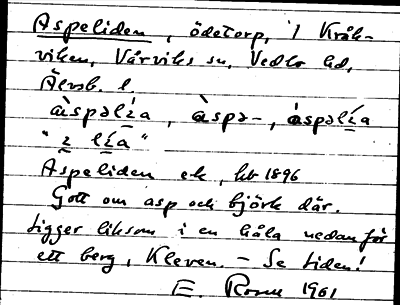 Aspeliden, ödetorp, i Kråk-
viken, Vårviks sn, Vedbo hd,
Älvsb. l.
àspəlı̣́a, àspə-, áspəlı̣́a
"ı̣ lı̣́a"
Aspeliden ek, hb 1896
Gott om asp och björk där.
Ligger liksom i en håla nedanför
ett berg, Kleven. - Se Liden!
E. Rosen 1961